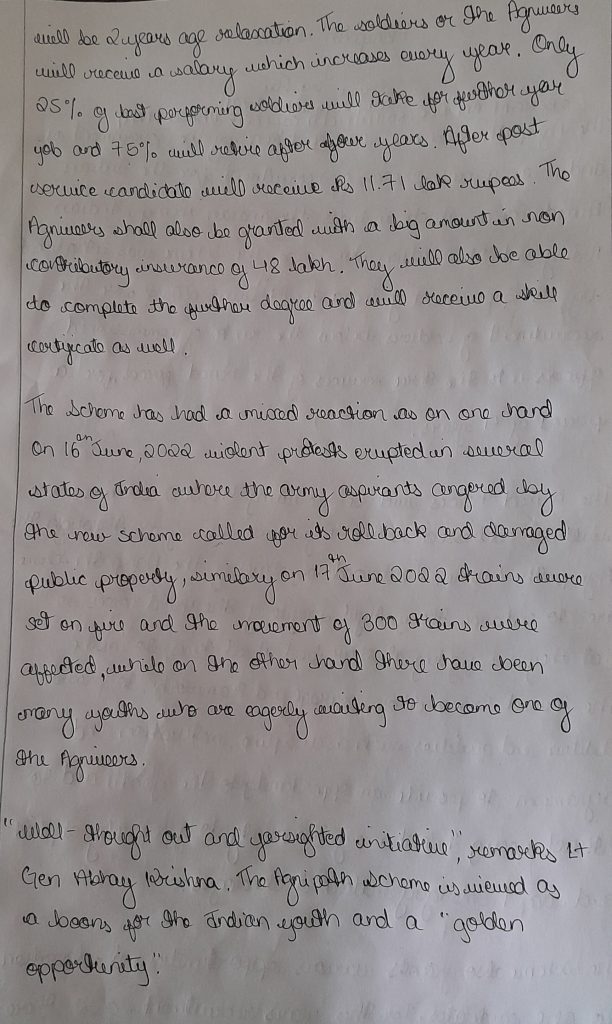 will be 2 years age relaxation. The soldiers or the Agniveers
will receive a salary which increases every year. Only
25% of best performing soldiers will take for further year
job and 75% will retire after four years. After post
service candidate will receive Rs 11.71 lak rupees. The
Agniveers shall also be granted with a big amount in non
contributory insurance of 48 lakh. They will also be able
to complete the further degree and will receive a skill
certificate as well.
The scheme has had a mixed reaction as on one hand
on 16th June, 2022 violent protests erupted in several
states of India where the army aspirants angered by
the new scheme called for its rollback and damaged
public property, similary on 17th June 2022 trains were
set on fire and the movement of 300 trains were
affected, while on the other hand there have been
many youths who are eagerly waiting to become one of
the Agniveers.
"Well-thought out and farsighted initiative", remarks Lt
Gen Abhay Krishna. The Agnipath scheme is viewed as
a boons for the Indian youth and a "golden
opportunity".